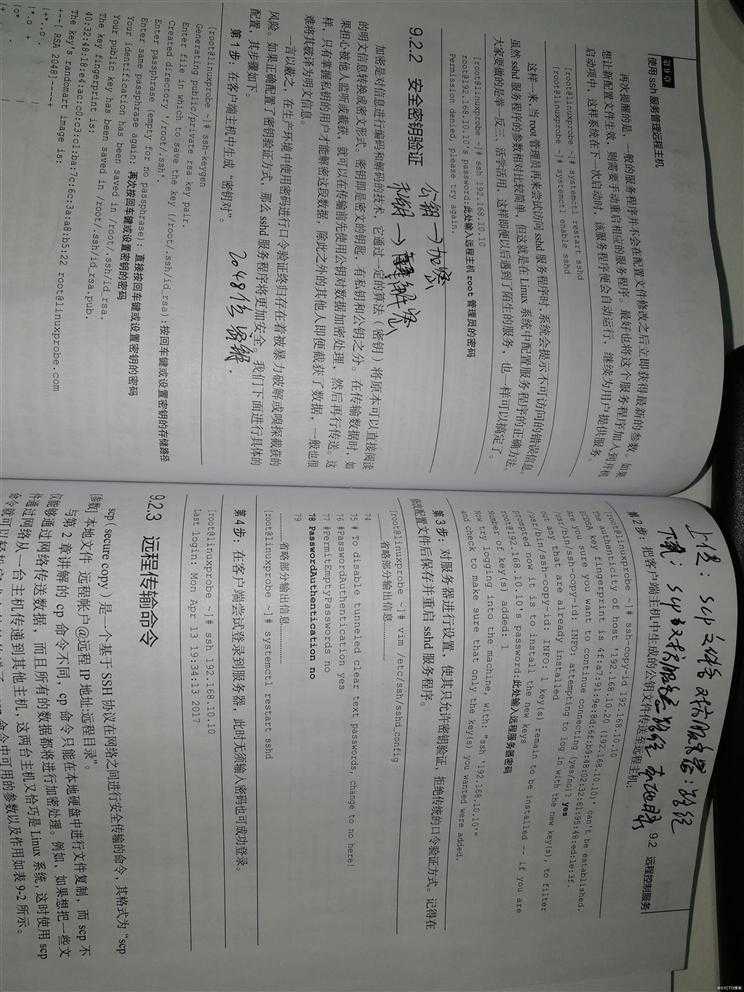 第9章
使用 ssh 服务管理远程主机
再次提醒的是，一般的服务程序并不会在配置文件修改之后立即获得最新的参数。如果
想让新配置文件生效，则需要手动重启相应的服务程序。最好也将这个服务程序加入到开机
启动项中，这样系统在下一次启动时，该服务程序便会自动运行，继续为用户提供服务。
[root@linuxprobe ~]# systemctl restart sshd
[root@linuxprobe ~]# systemctl enable sshd
这样一来，当 root 管理员再来尝试访问 sshd 服务程序时，系统会提示不可访问的错误信息。
虽然 sshd 服务程序的参数相对比较简单，但这就是在 Linux 系统中配置服务程序的正确方法。
大家要做的是举一反三、活学活用，这样即便以后遇到了陌生的服务，也一样可以搞定了。
[root@linuxprobe ~]# ssh 192.168.10.10
root@192.168.10.10's password:此处输入远程主机 root 管理员的密码
Permission denied, please try again.
9.2.2 安全密钥验证
公钥→加密
私钥→解密
加密是对信息进行编码和解码的技术，它通过一定的算法（密钥）将原本可以直接阅读
的明文信息转换成密文形式。密钥即是密文的钥匙，有私钥和公钥之分。在传输数据时，如
果担心被他人监听或截获，就可以在传输前先使用公钥对数据加密处理，然后再行传送。这
样，只有掌握私钥的用户才能解密这段数据，除此之外的其他人即便截获了数据，一般也很
难将其破译为明文信息。
一言以蔽之，在生产环境中使用密码进行口令验证终归存在着被暴力破解或嗅探截获的
风险。如果正确配置了密钥验证方式，那么 sshd 服务程序将更加安全。我们下面进行具体的
配置，其步骤如下。
第1步：在客户端主机中生成“密钥对”。
2048位 密钥.
[root@linuxprobe ~]# ssh-keygen
Generating public/private rsa key pair.
Enter file in which to save the key (/root/.ssh/id_rsa):按回车键或设置密钥的存储路径
Created directory '/root/.ssh'.
Enter passphrase (empty for no passphrase): 直接按回车键或设置密钥的密码
Enter same passphrase again: 再次按回车键或设置密钥的密码
Your identification has been saved in /root/.ssh/id_rsa.
Your public key has been saved in /root/.ssh/id_rsa.pub.
The key fingerprint is:
40:32:48:18:e4:ac:c0:c3:c1:ba:7c:6c:3a:a8:b5:22 root@linuxprobe.com
The key's randomart image is:
+--[ RSA 2048]----+
上传：scp 文件名 对方服务器：路径
下载：scp 对方服务器：路径
9.2 远程控制服务
第2步：把客户端主机中生成的公钥文件传送至远程主机：
[root@linuxprobe ~]# ssh-copy-id 192.168.10.10
The authenticity of host '192.168.10.20 (192.168.10.10)' can't be established.
are you sure you want to continue connecting (yes/no)? yes
/usr/bin/ssh-copy-id: INFO: attempting to log in with the new key(s), to filter
out any that are already installed
/usr/bin/ssh-copy-id: INFO: 1 key(s) remain to be installed -- if you are
prompted now it is to install the new keys
root@192.168.10.10's password:此处输入远程服务器密码
number of key(s) added: 1
now try logging into the machine, with "ssh '192.168.10.10'"
and check to make sure that only the key(s) you wanted were added.
第3步：对服务器进行设置，使其只允许密钥验证，拒绝传统的口令验证方式。记得在
修改配置文件后保存并重启 sshd 服务程序。
[root@linuxprobe ~]# vim /etc/ssh/sshd_config
………………省略部分输出信息………………
74
75 # To disable tunneled clear text passwords, change to no here!
76 #PasswordAuthentication yes
77 #PermitEmptyPasswords no
78 PasswordAuthentication no
79
………………省略部分输出信息………………
[root@linuxprobe ~]# systemctl restart sshd
第4步：在客户端尝试登录到服务器，此时无须输入密码也可成功登录。
[root@linuxprobe ~]# ssh 192.168.10.10
Last login: Mon Apr 13 19:34:13 2017
9.2.3 远程传输命令
scp（secure copy）是一个基于 SSH 协议在网络之间进行安全传输的命令，其格式为“scp
[参数] 本地文件 远程帐户@远程 IP 地址:远程目录”
与第 2 章讲解的 cp 命令不同，cp 命令只能在本地硬盘中进行文件复制，而 scp 不
仅能够通过网络传送数据，而且所有的数据都将进行加密处理。例如，如果想把一些文
件通过网络从一台主机传递到其他主机，这两台主机又恰巧是 Linux 系统，这时使用 scp
@51CTO博客